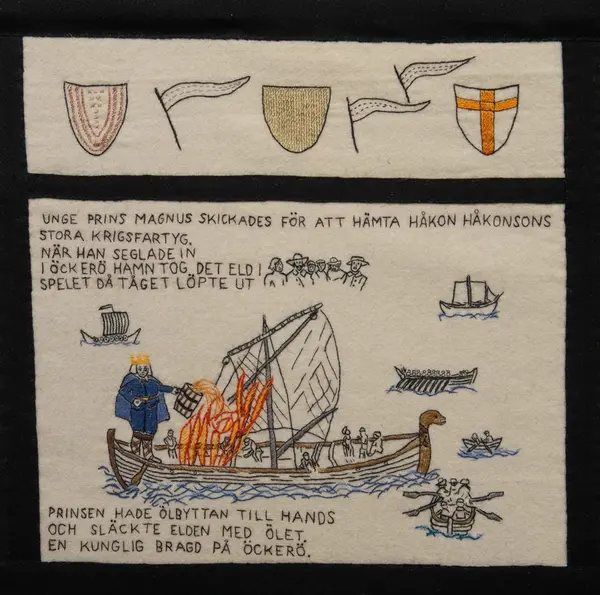 UNGE PRINS MAGNUS SKICKADES FÖR ATT HÄMTA HÅKON HÅKONSONS
STORA KRIGSFARTYG.
NÄR HAN SEGLADE IN
I ÖCKERÖ HAMN TOG DET ELD I
SPELET DÅ TÅGET LÖPTE UT
PRINSEN HADE ÖLBYTTAN TILL HANDS
OCH SLÄCKTE ELDEN MED ÖLET.
EN KUNGLIG BRAGD PÅ ÖCKERÖ.